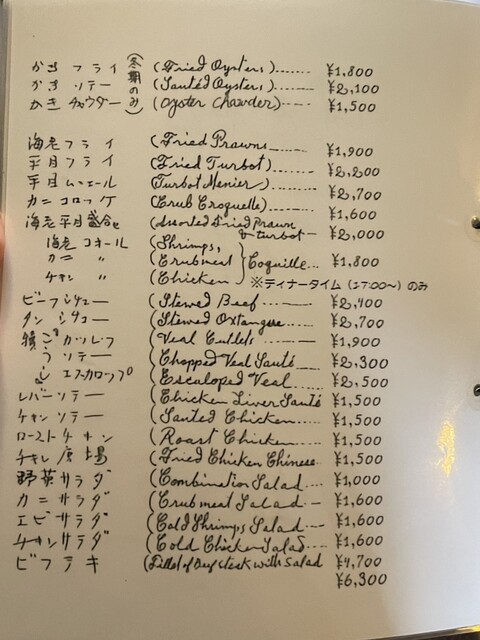 かき フライ (冬期のみ) (Fried Oysters)....... ¥1,800
かき ソテー (Sautéd Oysters)....... ¥2,100
かき チャウダー (Oyster Chawder)..... ¥1,500
海老 フライ (Fried Prawns.......... ¥1,900
平目 フライ (Fried Turbot)....... ¥2,200
平目 ムニエール (Turbot Menier)....... ¥2,700
カニ コロッケ (Crub Croquelle)....... ¥1,600
海老平目盛合せ (Assorted Fried Prawn & turbot— ¥2,000
海老 コキール (Shrimps,
カニ 〃 (Crubmeat } Coquille... ¥1,800
チキン 〃 (Chicken ※ディナータイム (17:00〜) のみ
ビーフシチュー (Stewed Beef ¥2,400
タンシチュー (Stewed Oxtangue ¥2,700
カツレツ (Veal Cutlets ¥1,900
ソテー (Chopped Veal Sauté ¥2,300
エスカロップ (Escaloped Veal ¥2,500
レバーソテー (Chicken Liver Sauté ¥1,500
チキンソテー (Sauted Chicken ¥1,500
ローストチキン (Roast Chicken ¥1,500
チキン唐揚 (Fried Chicken Chinese ¥1,500
野菜サラダ (Combination Salad ¥1,000
カニサラダ (Crubmeat Salad ¥1,600
エビサラダ (Cold Shrimps Salad ¥1,600
チキンサラダ (Cold Chicken Salad ¥1,600
ビフテキ (Fillet of Beefsteck with Salad ¥4,700
¥6,300